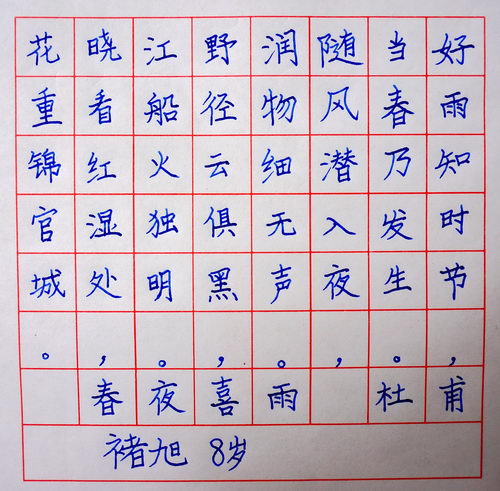 好雨知时节，
当春乃发生。
随风潜入夜，
润物细无声。
野径云俱黑，
江船火独明。
晓看红湿处，
花重锦官城。
春夜喜雨 杜甫
褚旭 8岁